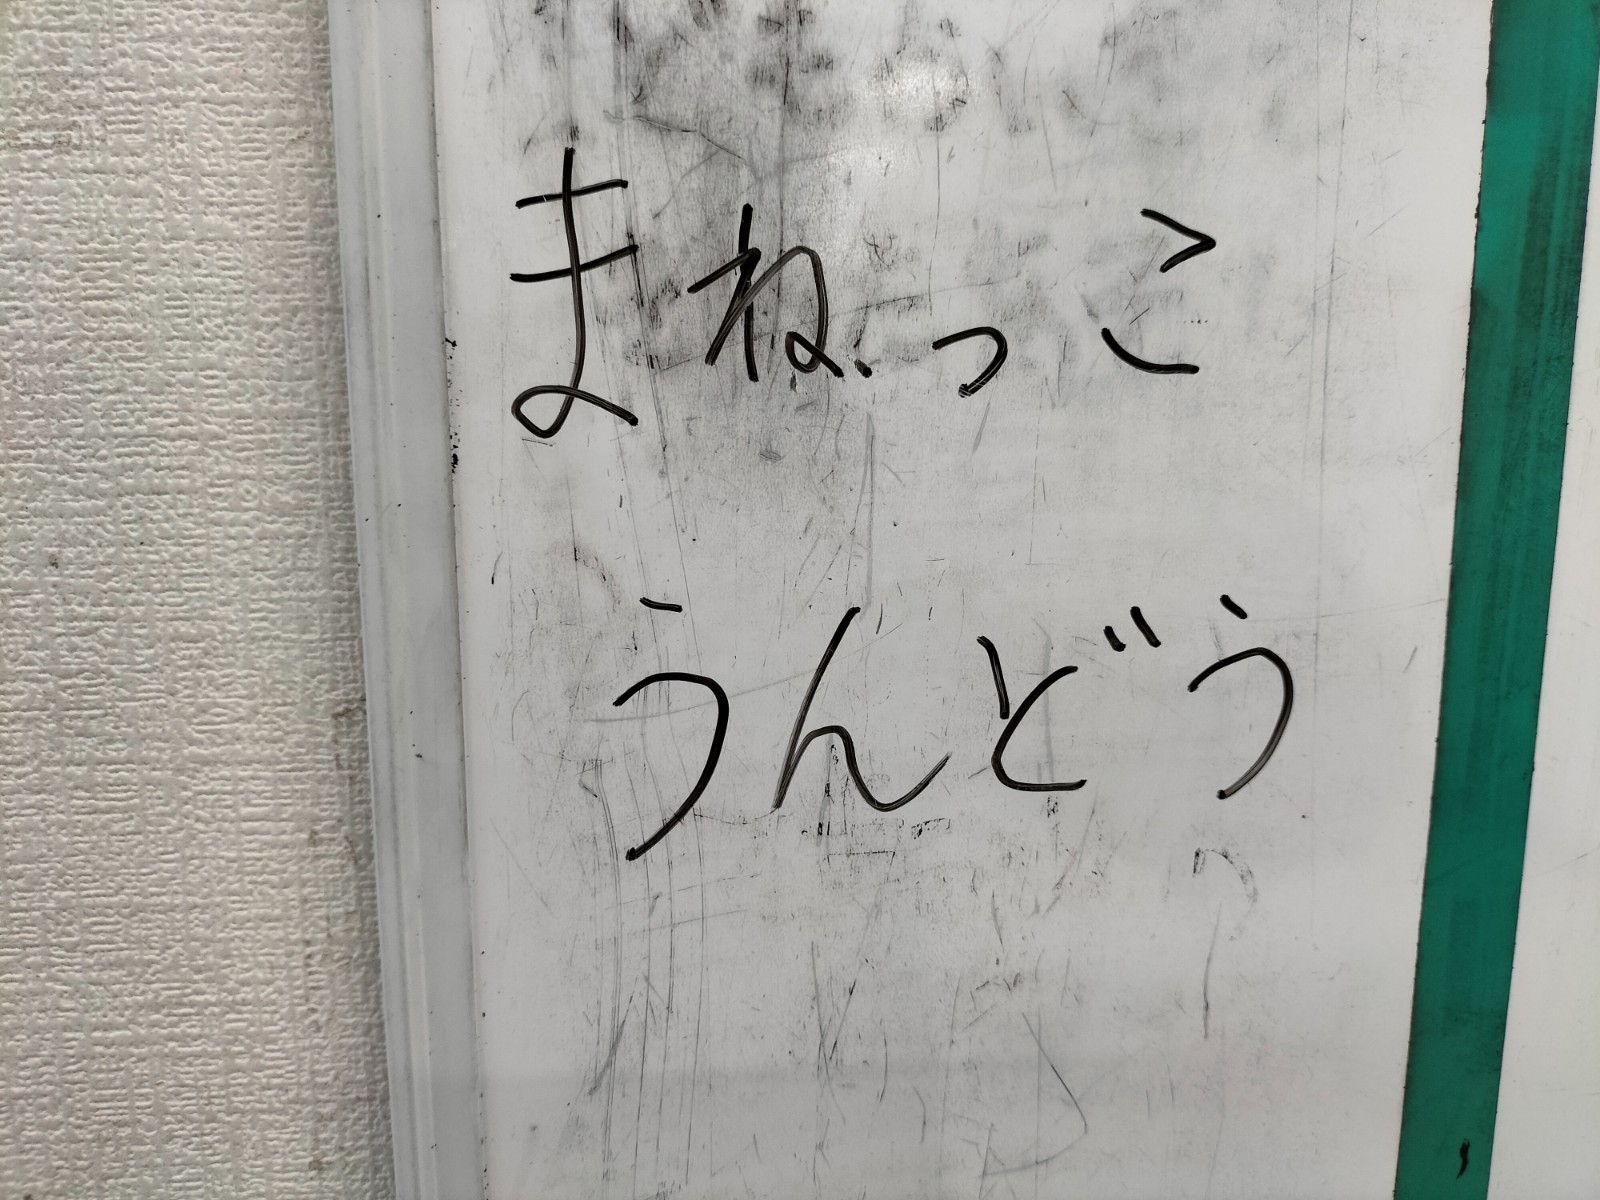 まねっこ
うんどう